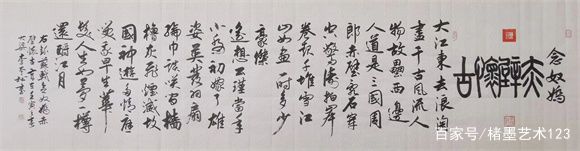 念奴嬌
赤壁懷古
大江東去浪淘
盡千古風流人
物故壘西邊
人道是三國周
郎赤壁亂石穿
空驚濤拍岸
卷起千堆雪江
山如畫一時多少
豪傑
遙想公瑾當年
小喬初嫁了雄
姿英發羽扇
綸巾談笑間檣
櫓灰飛煙滅故
國神遊多情應
笑我早生華
髮人生如夢一樽
還酹江月
蘇軾念奴嬌赤
壁懷古
百家号/楮墨艺术123